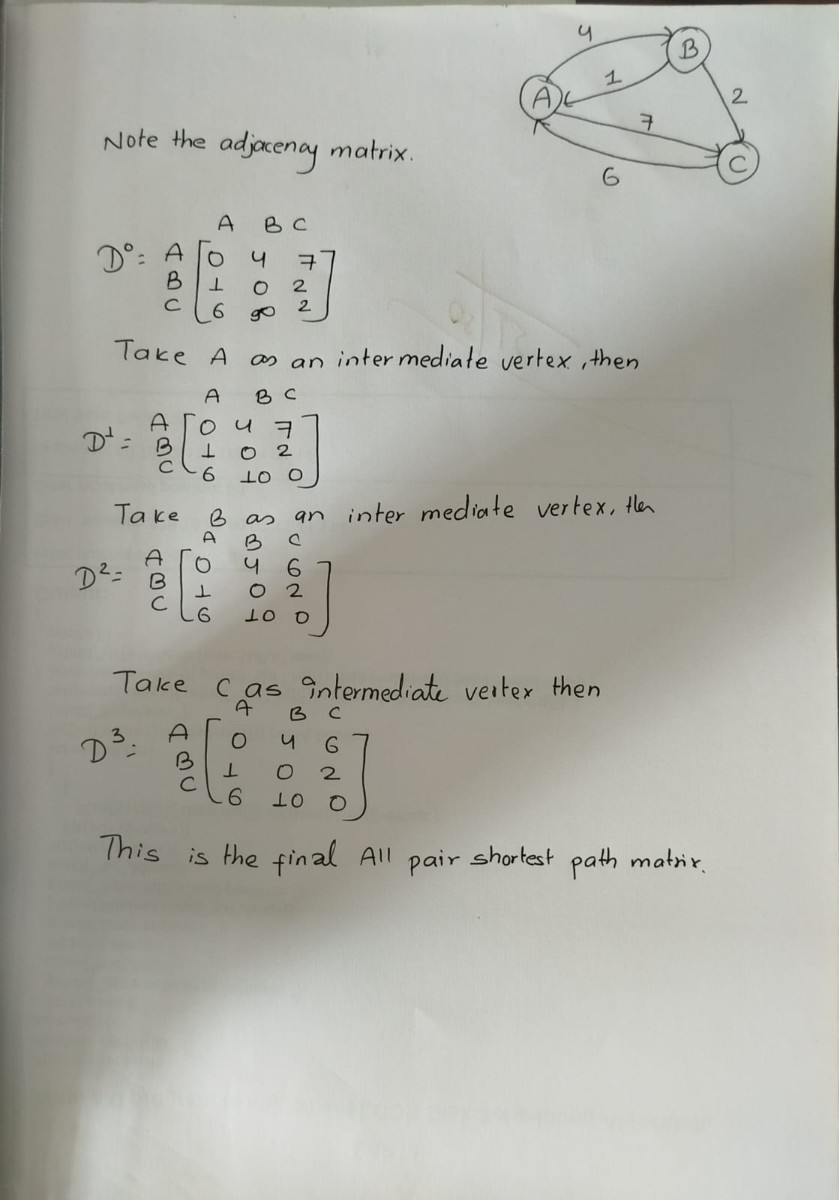 4
B
1
A
2
7
C
6
Note the adjacency matrix.
A B C
D⁰= A [0 4 7
B 1 0 2
C 6 ∞ 2]
Take A as an intermediate vertex, then
A B C
D¹= A [0 4 7
B 1 0 2
C 6 10 0]
Take B as an inter mediate vertex, then
A B C
D²= A [0 4 6
B 1 0 2
C 6 10 0]
Take C as intermediate vertex then
A B C
D³= A [0 4 6
B 1 0 2
C 6 10 0]
This is the final All pair shortest path matrix.